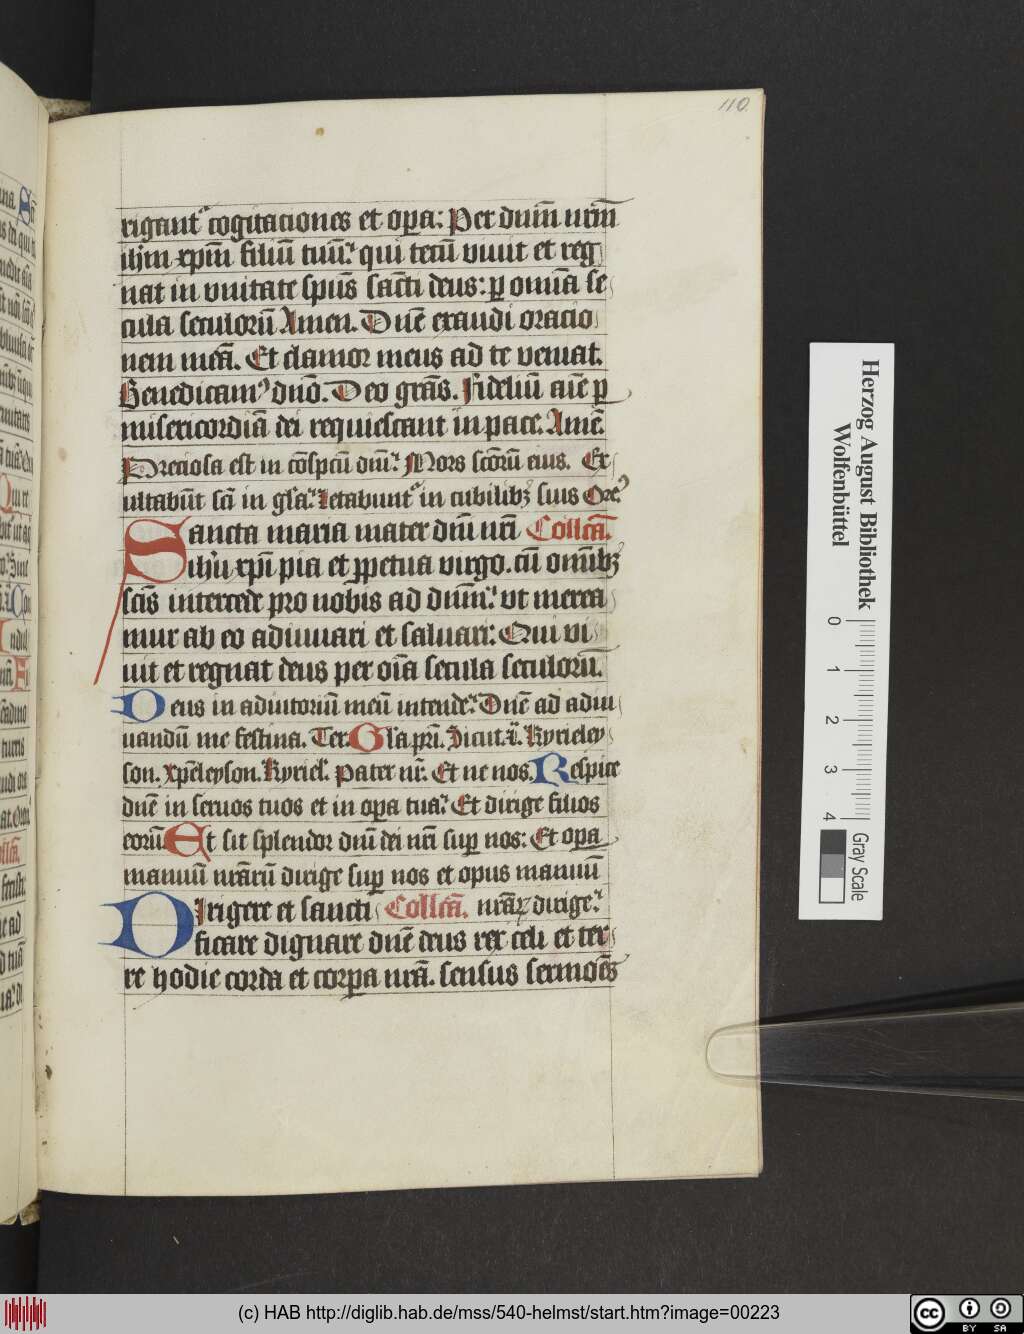 110
rigant᷒ cogitaciones et oꝑa: Per dnm̄ nrm̄
ihm xpm̄ filiū tuū: qui tecū viuit et reg
nat in vnitate spūs sācti deus: ꝑ omīa se
cula seculorū Amen. Dn̄e exaudi oracio
nem meā. Et clamor meus ad te veniat.
Benedicam᷒ dn̄o. Deo grās. Fideliū aīe ꝑ
misericordiā dei requiescant in pace. Amē.
Preciosa est in cōspcū dn̄i: Mors scōrū eius. Ex
ultabūt sc̄i in gl̄a: letabunt᷒ in cubilibꝫ suis Ore᷒
ancta maria mater dn̄i nr̄i Collc̄a.
Sihū xpī pia et ꝑpetua virgo. cū omībꝫ
sc̄is intercede pro nobis ad dn̄m: vt merea
mur ab eo adiuuari et saluari: Qui vi
uit et regnat deus per oīa secula seculorū.
Deus in adiutoriū meū intende: Dn̄e ad adiu
uandū me festina. Ter. Gl̄a pr̄i. Sicut. i. Kyrieley
son. Xpēleyson. Kyriel. Pater nr̄. Et ne nos. Respice
dn̄e in seruos tuos et in oꝑa tua: Et dirige filios
eorū Et sit splendor dn̄i dei nr̄i suꝑ nos: Et oꝑa
manuū nrārū dirige suꝑ nos et opus manuū
Dirigere et sancti Collc̄a. nrāꝝ dirige:
ficare dignare dn̄e deus rex celi et ter
re hodie corda et corꝑa nrā. sensus sermoēs
Herzog August Bibliothek
Wolfenbüttel
0 1 2 3 4
Gray Scale
(c) HAB http://diglib.hab.de/mss/540-helmst/start.htm?image=00223
cc BY SA